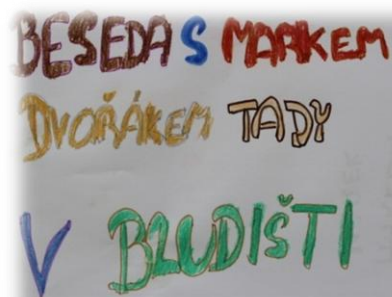 BESEDA S MARKEM
DVOŘÁKEM TADY
V BLUDIŠTI